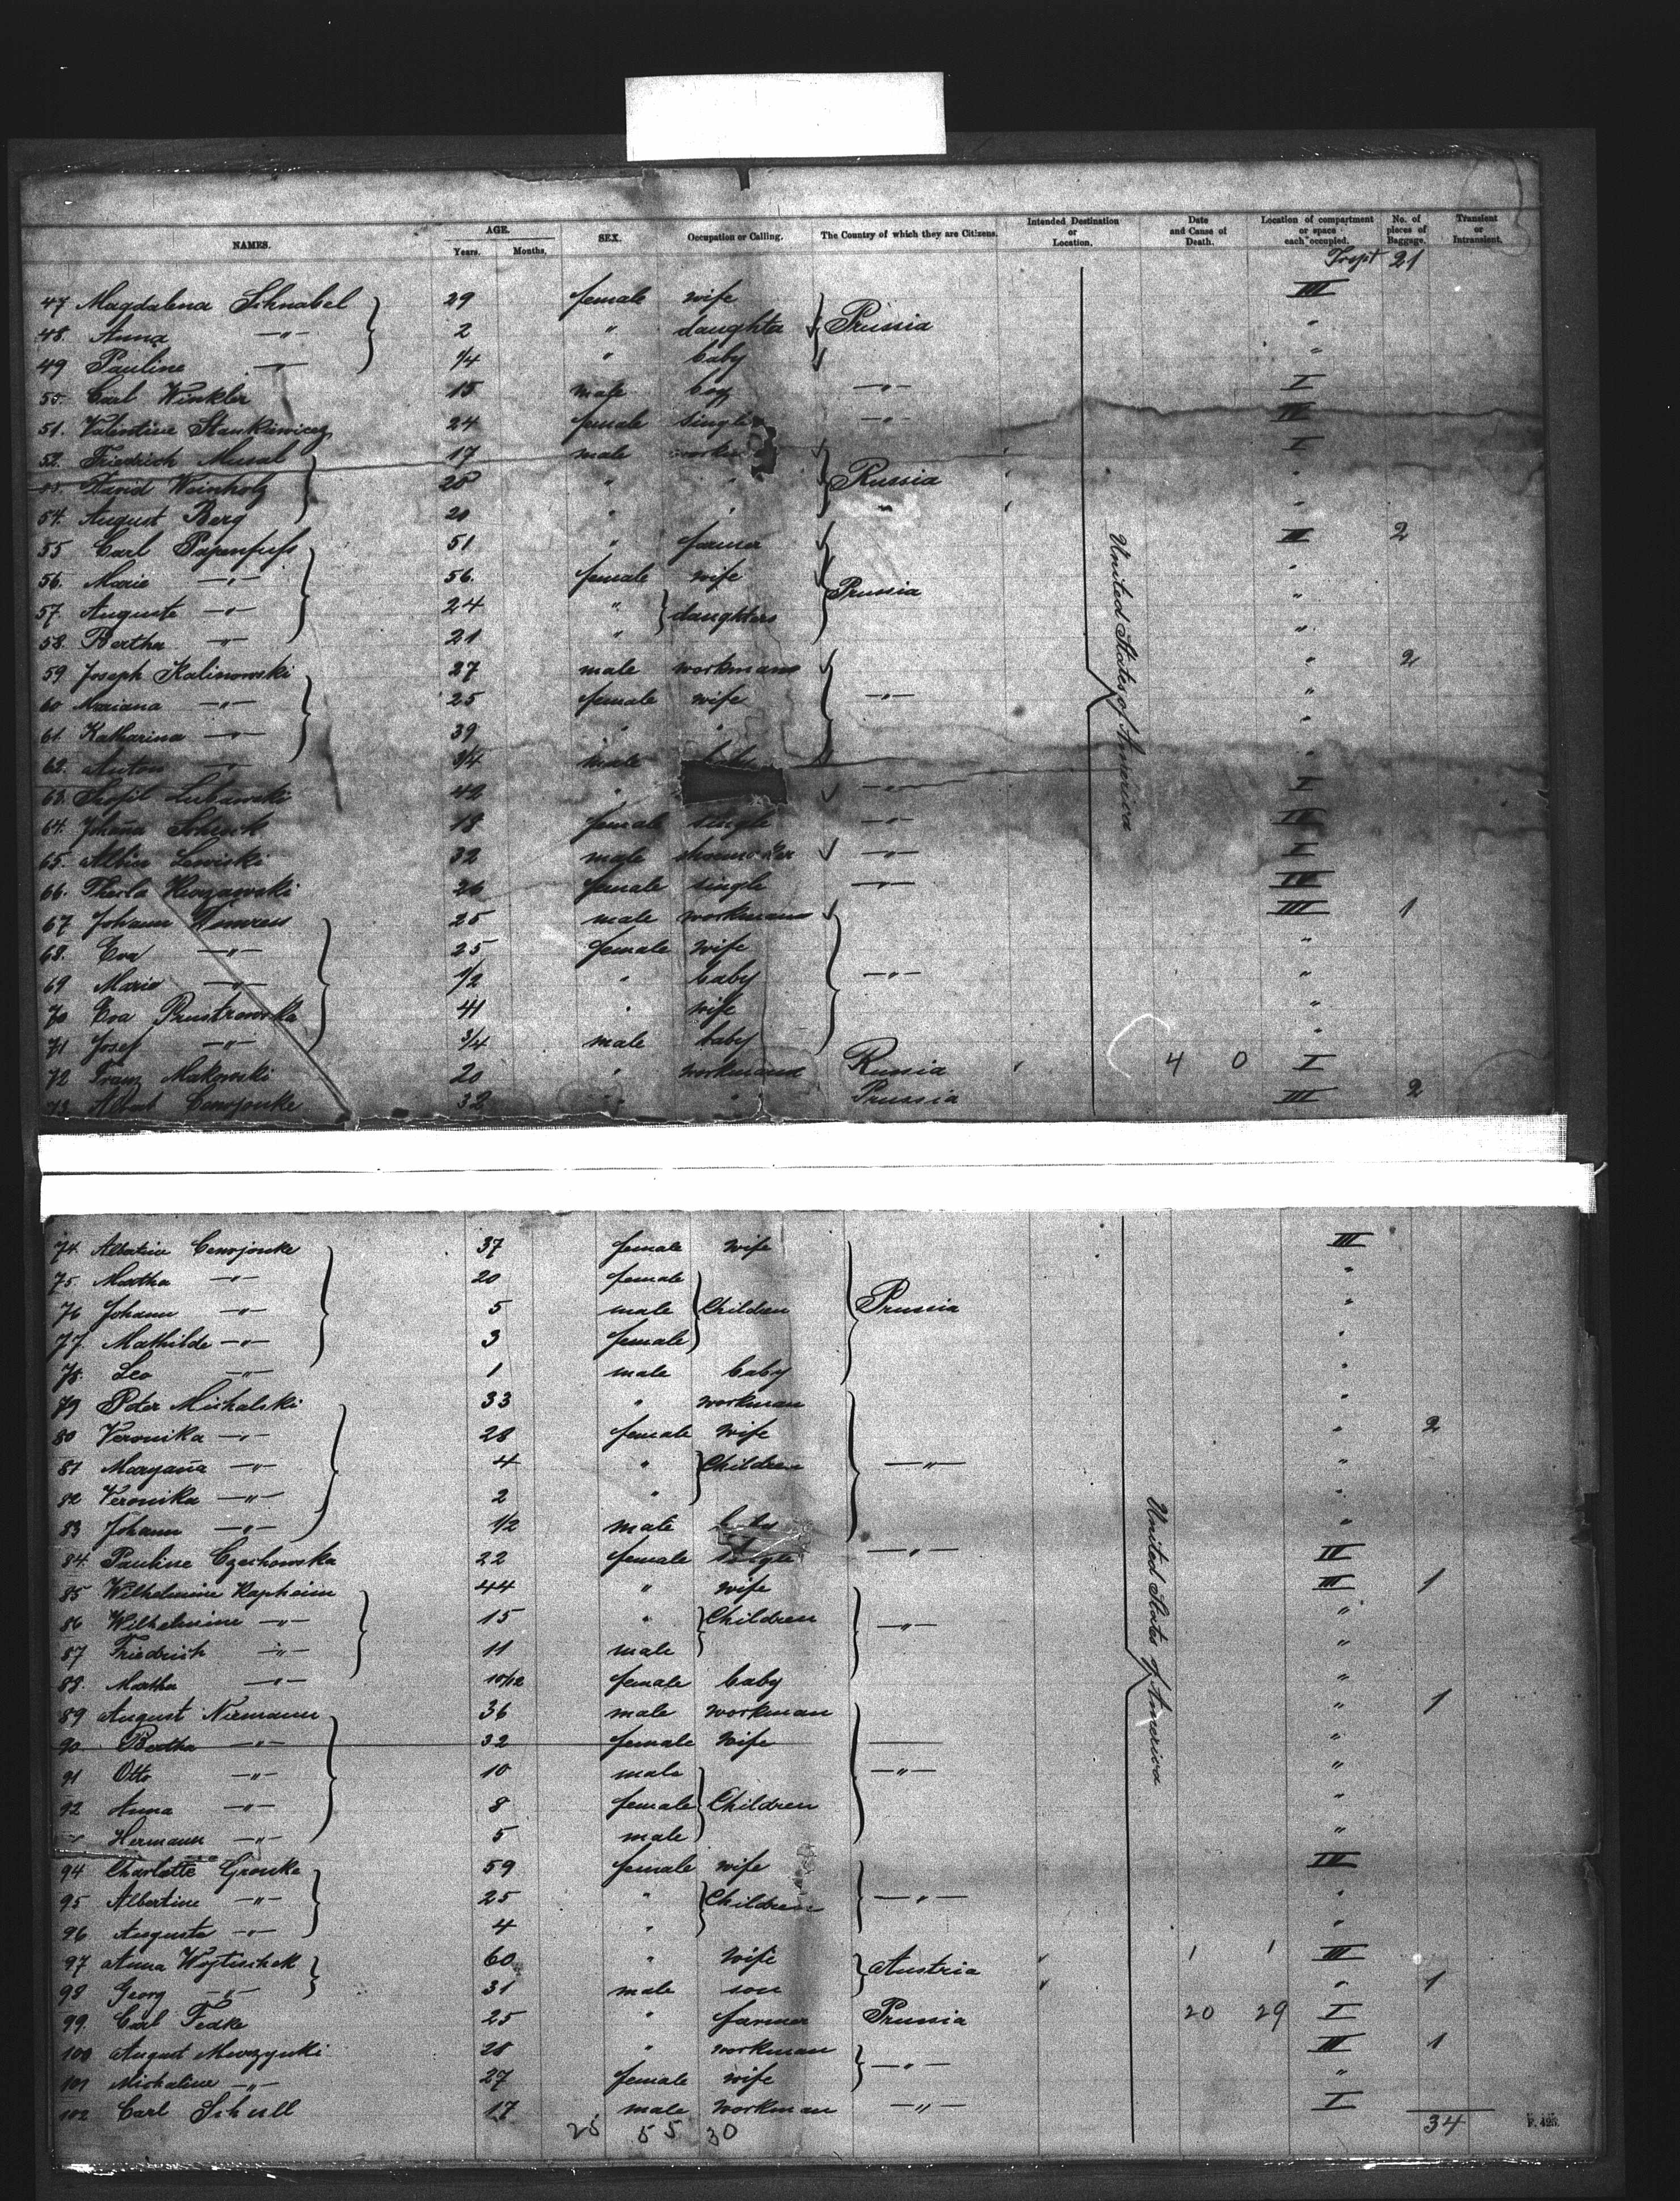 NAMES. AGE. Years. Months. SEX. Occupation or Calling. The Country of which they are Citizens. Intended Destination or Location. Date and Cause of Death. Location of compartment or space each occupied. No. of pieces of Baggage. Transient or Intransient.
21
47 Magdalena Schnabel 29 female wife III
48. Anna —"— 2 " daughter Prussia "
49 Pauline —"— 1/4 " baby "
Carl Winkler 15 male boy —"— I
51. Valentine Stankiewicz 24 female single —"— IV
52. Friedrich Musal 17 male I
David Weinholz 28 " " Russia "
54. August Berg 20 " " "
55 Carl Papenfuss 51 " farmer III 2
56. Marie —"— 56. female wife Prussia "
57. Auguste —"— 24 " daughters "
58. Bertha —"— 21 " "
59 Joseph Kalinowski 27 male workman " 2
60 Mariana —"— 25 female wife —"— "
61. Katharina —"— 39 " " "
62. Anton —"— 3/4 male "
63. Lubawski 42 " —"— I
64. Johana Schrock 18 female single —"— IV
65. Albin Lewiski 32 male shoemaker —"— I
66. Thecla 20 female single —"— IV
67 Johann 25 male workman III 1
68. Eva —"— 25 female wife "
69 Marie —"— 1/2 " baby —"— "
70 Eva Prustrowska 41 " wife "
71 Josef —"— 3/4 male baby "
72 Franz Makowski 20 " workman Russia 4 0 I
32 " " Prussia III 2
74 37 female wife III
75. Martha —"— 20 female "
76 Johann —"— 5 male Children Prussia "
77. Mathilde —"— 3 female "
78. Leo —"— 1 male baby "
79 Peter Michalski 33 " workman "
80 Veronika —"— 28 female wife " 2
81 Maryana —"— 4 " Children —"— "
82 Veronika —"— 2 " "
83 Johann —"— 1/2 male "
84. Pauline Czechowska 22 female single —"— IV
85 Wilhelmine Kapheim 44 " wife III 1
86 Wilhelmine —"— 15 " Children —"— "
87 Friedrich —"— 11 male "
88. Martha —"— 10/12 female baby "
89 August Niemann 36 male workman " 1
90 Bertha —"— 32 female wife "
91 Otto —"— 10 male —"— "
92 Anna —"— 8 female Children "
Hermann —"— 5 male "
94 Charlotte Gronke 59 female wife IV
95 Albertine —"— 25 " Children —"— "
96 Auguste —"— 4 " "
97 Anna Wojtischek 60 " wife Austria 1 1 III
98 Georg —"— 31 male son " 1
99. Carl Fedke 25 " farmer Prussia 20 29 I
100 August Murzynki 28 " workman —"— III 1
101 Michaline —"— 27 female wife "
102 Carl Schull 17 male workman —"— I
25 55 30 34
United States of America
United States of America